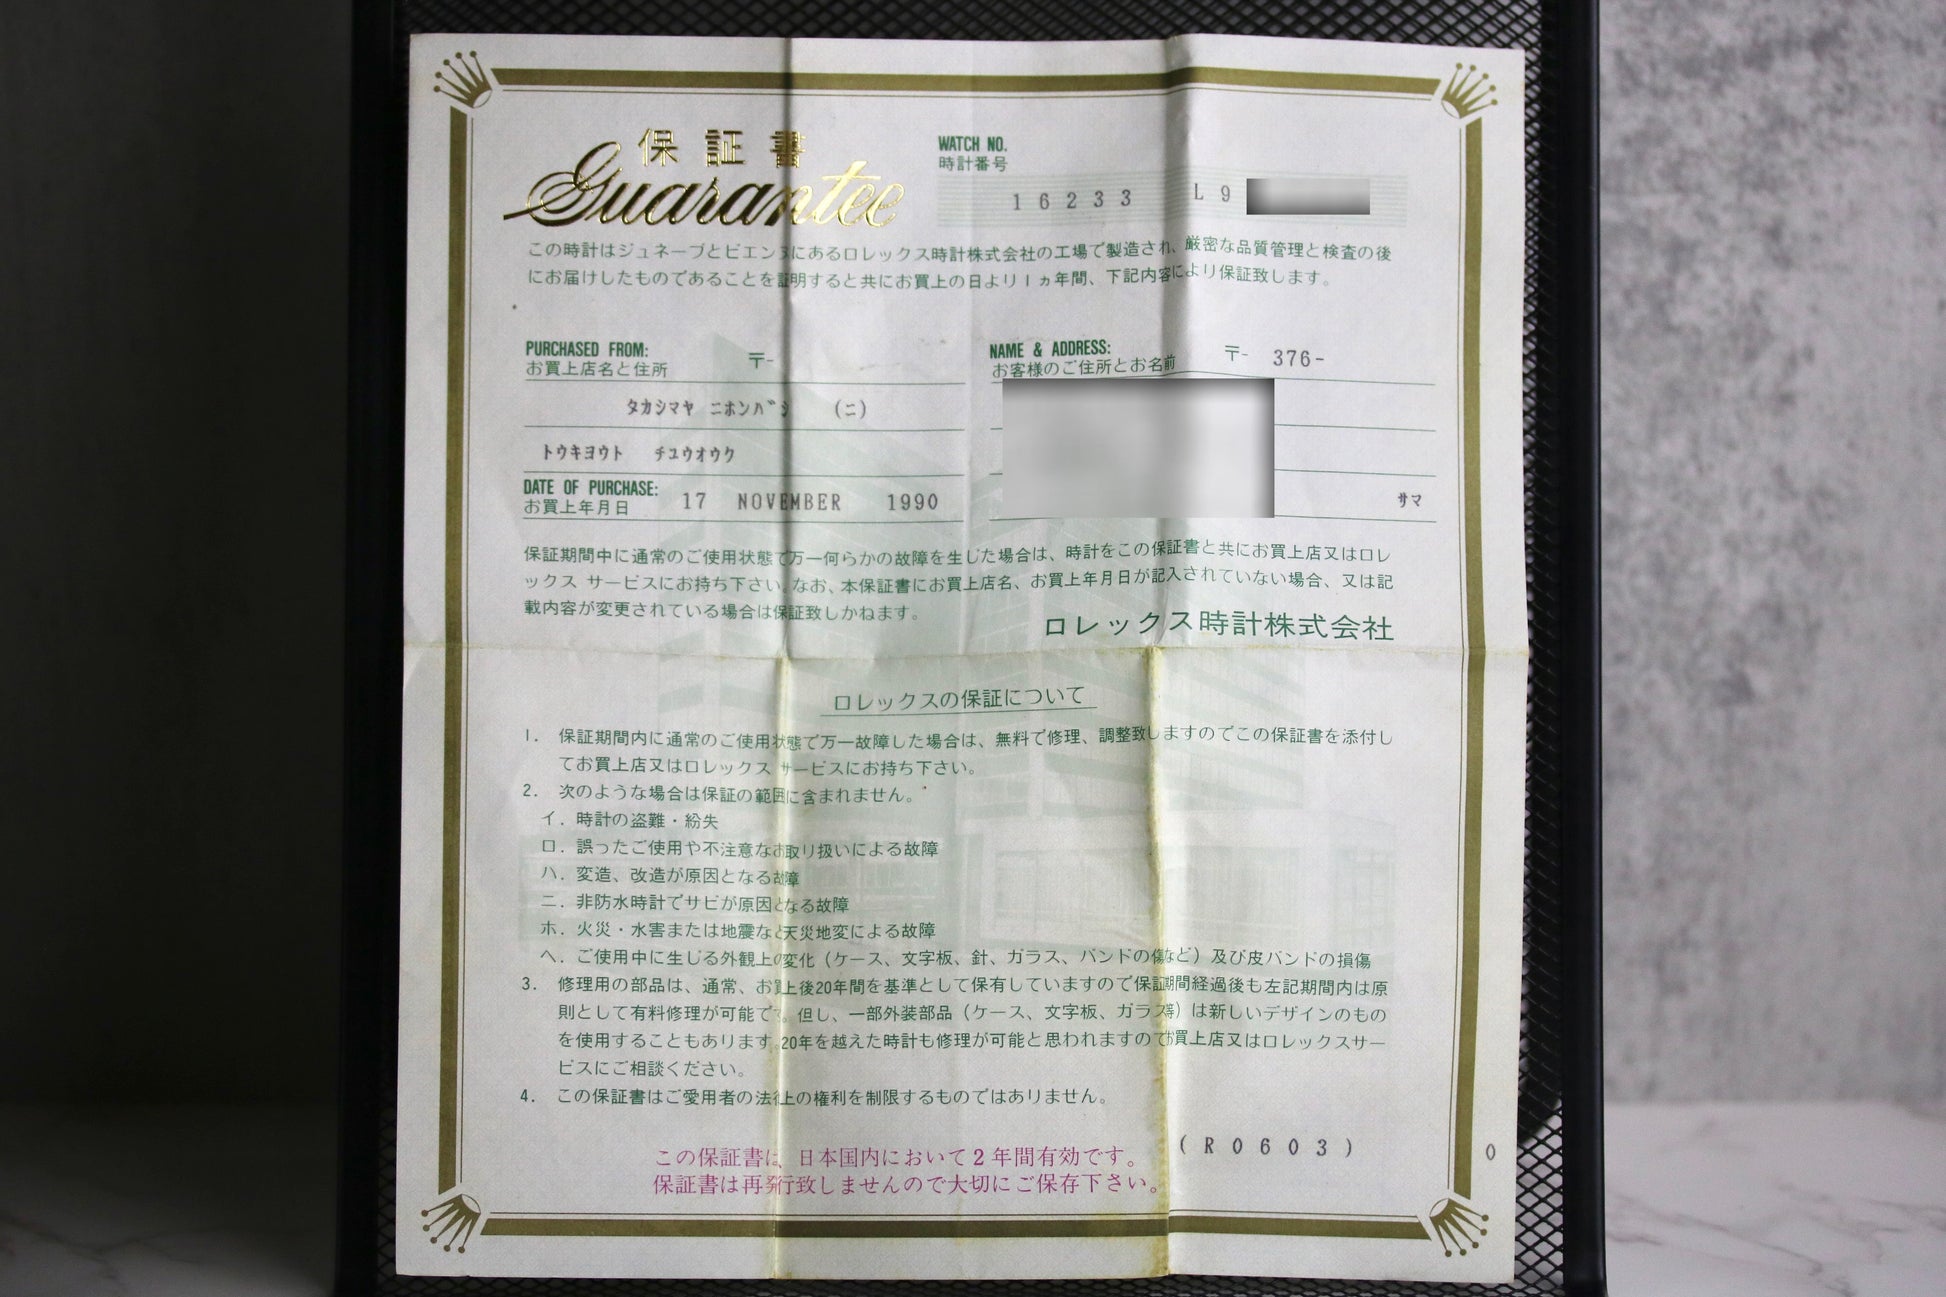 保証書
Guarantee
WATCH NO.
時計番号
16233 L9
この時計はジュネーブとビエンヌにあるロレックス時計株式会社の工場で製造され、厳密な品質管理と検査の後
にお届けしたものであることを証明すると共にお買上の日より1ヵ年間、下記内容により保証致します。
PURCHASED FROM: 〒-
お買上店名と住所
タカシマヤ ニホンバシ (ニ)
トウキヨウト チユウオウク
DATE OF PURCHASE:
お買上年月日 17 NOVEMBER 1990
NAME & ADDRESS: 〒- 376-
お客様のご住所とお名前
サマ
保証期間中に通常のご使用状態で万一何らかの故障を生じた場合は、時計をこの保証書と共にお買上店又はロレ
ックス サービスにお持ち下さい。なお、本保証書にお買上店名、お買上年月日が記入されていない場合、又は記
載内容が変更されている場合は保証致しかねます。
ロレックス時計株式会社
ロレックスの保証について
1. 保証期間内に通常のご使用状態で万一故障した場合は、無料で修理、調整致しますのでこの保証書を添付し
てお買上店又はロレックス サービスにお持ち下さい。
2. 次のような場合は保証の範囲に含まれません。
イ. 時計の盗難・紛失
ロ. 誤ったご使用や不注意なお取り扱いによる故障
ハ. 変造、改造が原因となる故障
ニ. 非防水時計でサビが原因となる故障
ホ. 火災・水害または地震など天災地変による故障
ヘ. ご使用中に生じる外観上の変化（ケース、文字板、針、ガラス、バンドの傷など）及び皮バンドの損傷
3. 修理用の部品は、通常、お買上後20年間を基準として保有していますので保証期間経過後も左記期間内は原
則として有料修理が可能です。但し、一部外装部品（ケース、文字板、ガラス等）は新しいデザインのもの
を使用することもあります。20年を越えた時計も修理が可能と思われますのでお買上店又はロレックスサー
ビスにご相談ください。
4. この保証書はご愛用者の法律上の権利を制限するものではありません。
(R0603) 0
この保証書は、日本国内において2年間有効です。
保証書は再発行致しませんので大切にご保存下さい。